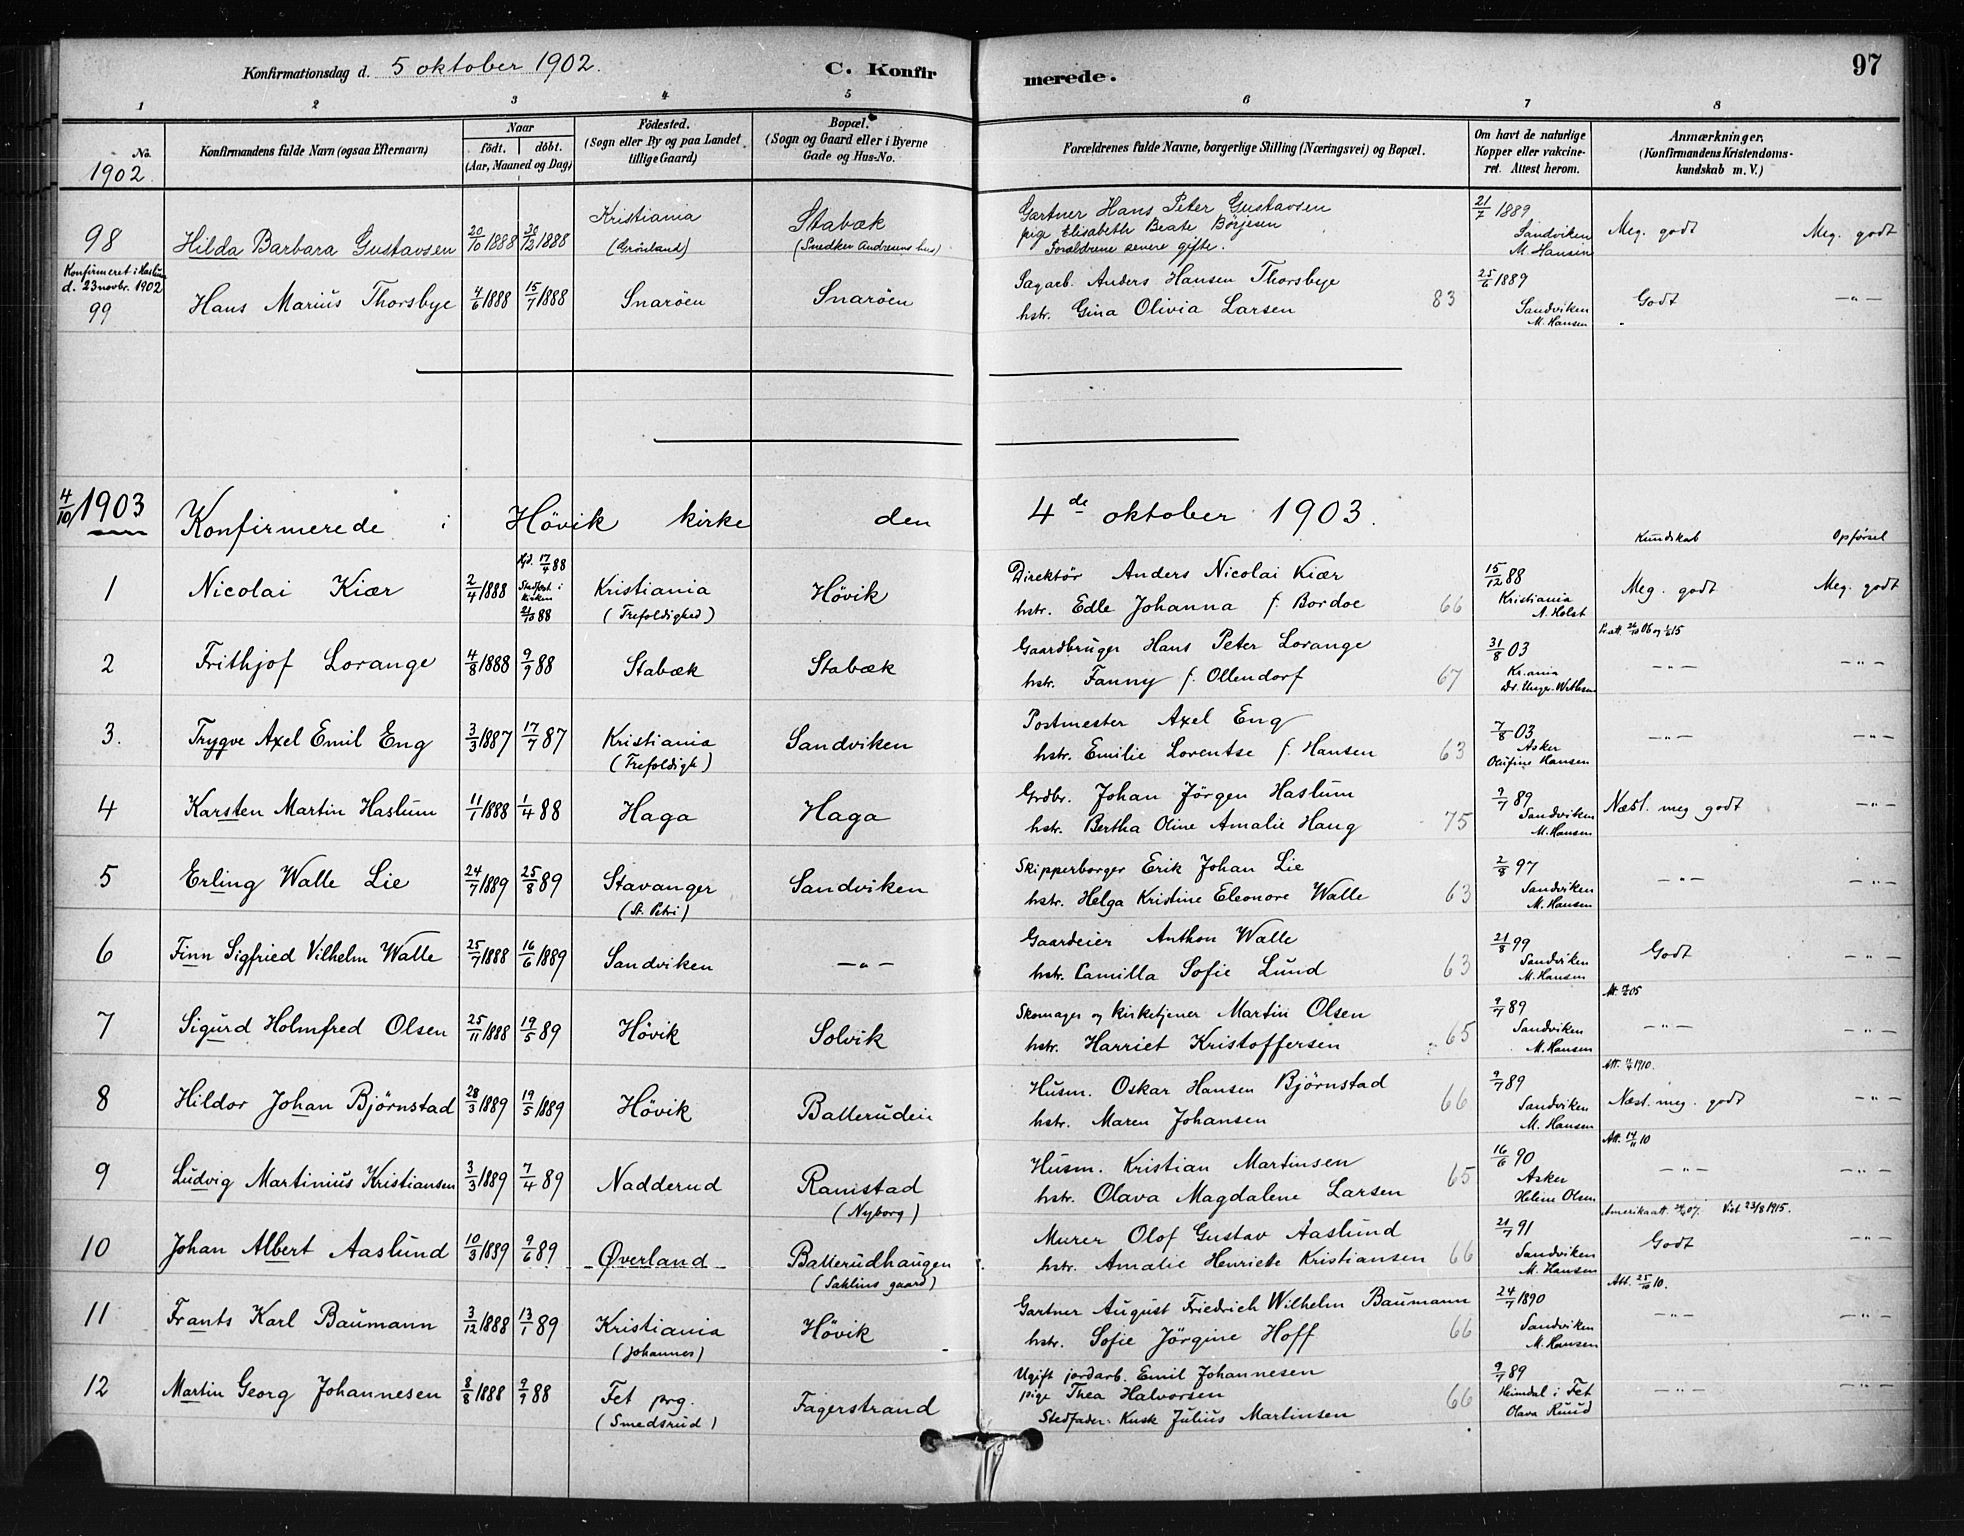 Konfirmationsdag d. 5 oktober 1902. C. Konfirmerede. 97
1 2 3 4 5 6 7 8
No. Konfirmandens fulde Navn (ogsaa Efternavn) Naar födt. döbt. (Aar, Maaned og Dag) Födested. (Sogn eller By og paa Landet tillige Gaard) Bopæl. (Sogn og Gaard eller i Byerne Gade og Hus-No. Forældrenes fulde Navne, borgerlige Stilling (Næringsvei) og Bopæl. Om havt de naturlige Kopper eller vakcineret. Attest herom. Anmærkninger. (Konfirmandens Kristendomskundskab m. V.)
1902.
98 Hilda Barbara Gustavsen 20/10 1888 30/12 1888 Kristiania (Grönland) Stabæk (Snedker Andresens hus)
Gartner Hans Peter Gustavsen
pige Elisabeth Beate Börjesen
Forældrene senere gifte.
21/7 1889 Sandviken M. Hansen Meg. godt Meg. godt
Konfirmeret i Haslum d. 23 novbr. 1902
99 Hans Marius Thorsbye 4/6 1888 15/7 1888 Snaröen Snaröen
Sagarb. Anders Hansen Thorsbye
hstr. Gina Olivia Larsen 83
25/6 1889 Sandviken M. Hansen Godt —"—
4/10 1903 Konfirmerede i Hövik kirke den 4de oktober 1903.
Kundskab Opförsel
1 Nicolai Kiær 2/4 1888 Hjd. 17/4 88 Stadfæst i kirken 21/10 88 Kristiania (Trefoldighed) Hövik
Direktör Anders Nicolai Kiær
hstr. Edle Johanna f. Bordoe 66
15/12 88 Kristiania A. Holst Meg. godt Meg. godt
2 Frithjof Lorange 4/8 1888 9/9 88 Stabæk Stabæk
Gaardbruger Hans Peter Lorange
hstr. Fanny f. Ollendorf 67
31/8 03 Kr.ania —"— —"—
3. Trygve Axel Emil Eng 3/3 1887 17/7 87 Kristiania (Trefoldigh) Sandviken
Postmester Axel Eng
hstr. Emilie Lorentse f. Hansen 63
7/8 03 Asker Olufine Hansen —"— —"—
4 Karsten Martin Haslum 11/1 1888 1/4 88 Haga Haga
Grdbr. Johan Jörgen Haslum
hstr. Bertha Oline Amalie Haug 75
9/7 89 Sandviken M. Hansen Næst. meg godt —"—
5 Erling Walle Lie 24/7 1889 25/8 89 Stavanger (St. Petri) Sandviken
Skipperborger Erik Johan Lie
hstr. Helga Kristine Eleonore Walle 63
2/8 97 Sandviken M. Hansen —"— —"—
6 Finn Sigfried Vilhelm Walle 25/7 1888 16/6 1889 Sandviken —"—
Gaardeier Anthon Walle
hstr. Camilla Sofie Lund 63
21/8 99 Sandviken M. Hansen Godt —"—
7 Sigurd Holmfred Olsen 25/11 1888 19/5 89 Hövik Solvik
Skomager og kirketjener Martin Olsen
hstr. Harriet Kristoffersen 65
9/7 89 Sandviken M. Hansen —"— —"—
8 Hildor Johan Björnstad 28/3 1889 19/5 1889 Hövik Ballerudeie
Husm. Oskar Hansen Björnstad
hstr. Maren Johansen 66
9/7 89 Sandviken M. Hansen Næst. meg. godt —"—
9 Ludvig Martinius Kristiansen 3/3 1889 7/4 89 Nadderud Ramstad (Nyborg)
Husm. Kristian Martinsen
hstr. Olava Magdalene Larsen 65
16/6 90 Asker Helene Olsen Att. 14/11 10 —"— —"—
10 Johan Albert Aaslund 10/3 1889 9/6 89 Øverland Ballerudhaugen (Sahlins gaard)
Murer Olof Gustav Aaslund
hstr. Amalie Henriette Kristiansen 66
21/7 91 Sandviken M. Hansen Viet 23/8 1915. Godt —"—
11 Frants Karl Baumann 3/12 1888 13/1 89 Kristiania (Johannes) Hövik
Gartner August Friedrich Wilhelm Baumann
hstr. Sofie Jörgine Hoff 66
24/7 1890 Sandviken M. Hansen Att. 25/10 10. —"— —"—
12 Martin Georg Johannesen 8/8 1888 9/9 88 Fet prg. (Smedsrud) Fagerstrand
Ugift jordarb. Emil Johannesen
pige Thea Halvorsen 66
Stedfader: Kusk Julius Martinsen
9/7 89 Heimdal i Fet Olava Ruud —"— —"—